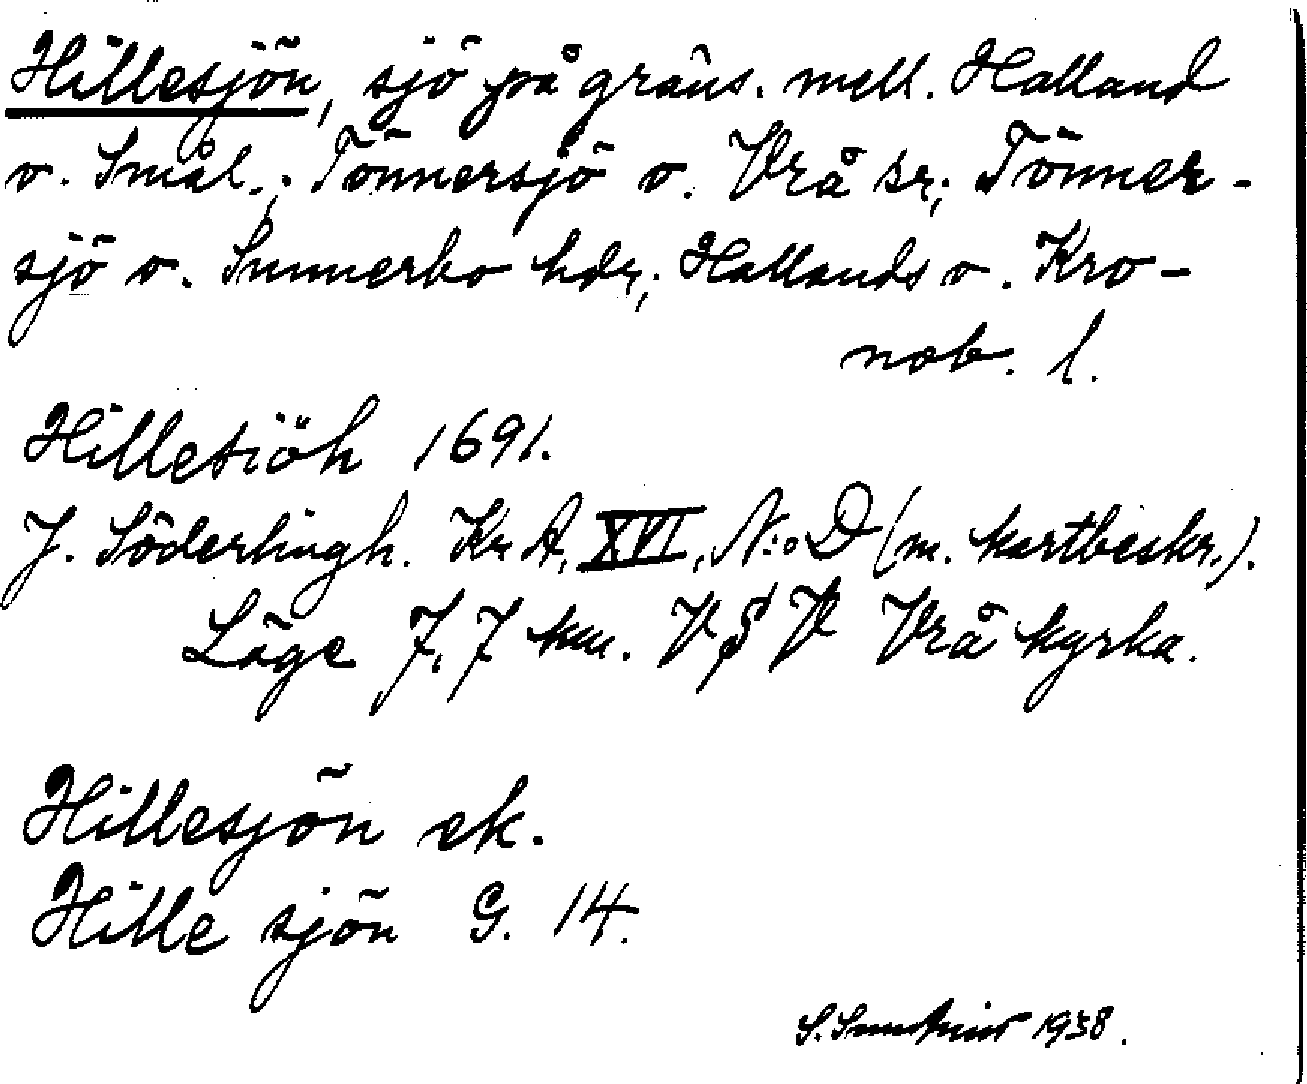 Hillesjön, sjö på gräns. mell. Halland
o. Smål.; Tönnersjö o. Vrå sr; Tönner-
sjö o. Sunnerbo hdr; Hallands o. Kro-
nob. l.
Hillesiöh 1691.
J. Söderlingh. Kr. A. XVI, N:o D (m. kartbeskr.).
Läge 7,7 km. V S V Vrå kyrka.
Hillesjön ek.
Hille sjön G. 14.
S. 1938.